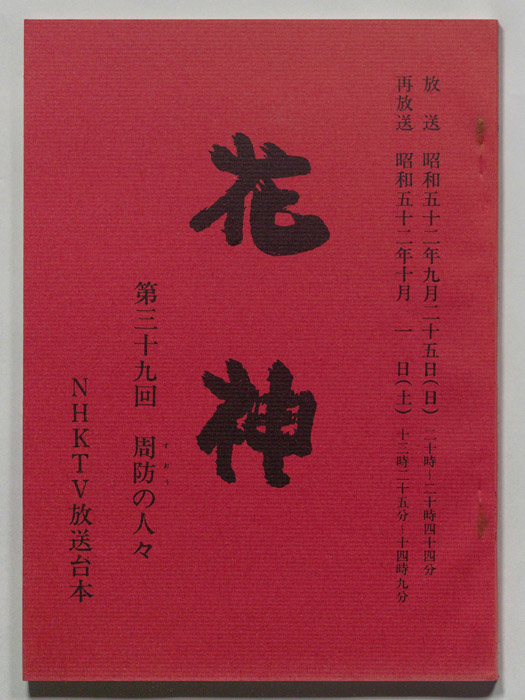 放　送　昭和五十二年九月二十五日(日)　二十時~二十時四十四分
再放送　昭和五十二年十月　一　日(土)　十三時二十五分~十四時九分
花神
第三十九回　周防の人々
すおう
NHKTV放送台本